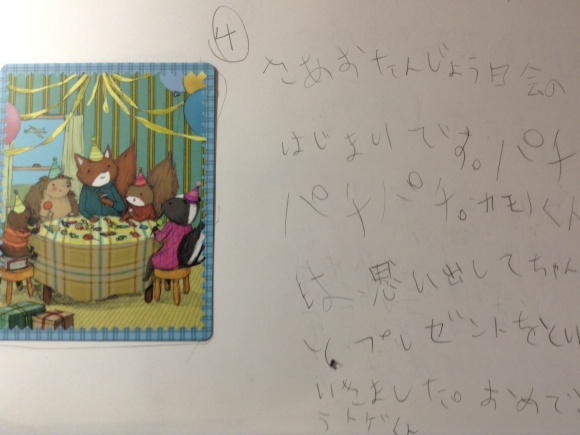 ④
さあおたんじょう日会の
はじまりです。パチ
パチパチ。カモノくん
は、思い出してちゃん
と、プレゼントをとり
いきました。おめでと
うトゲくん